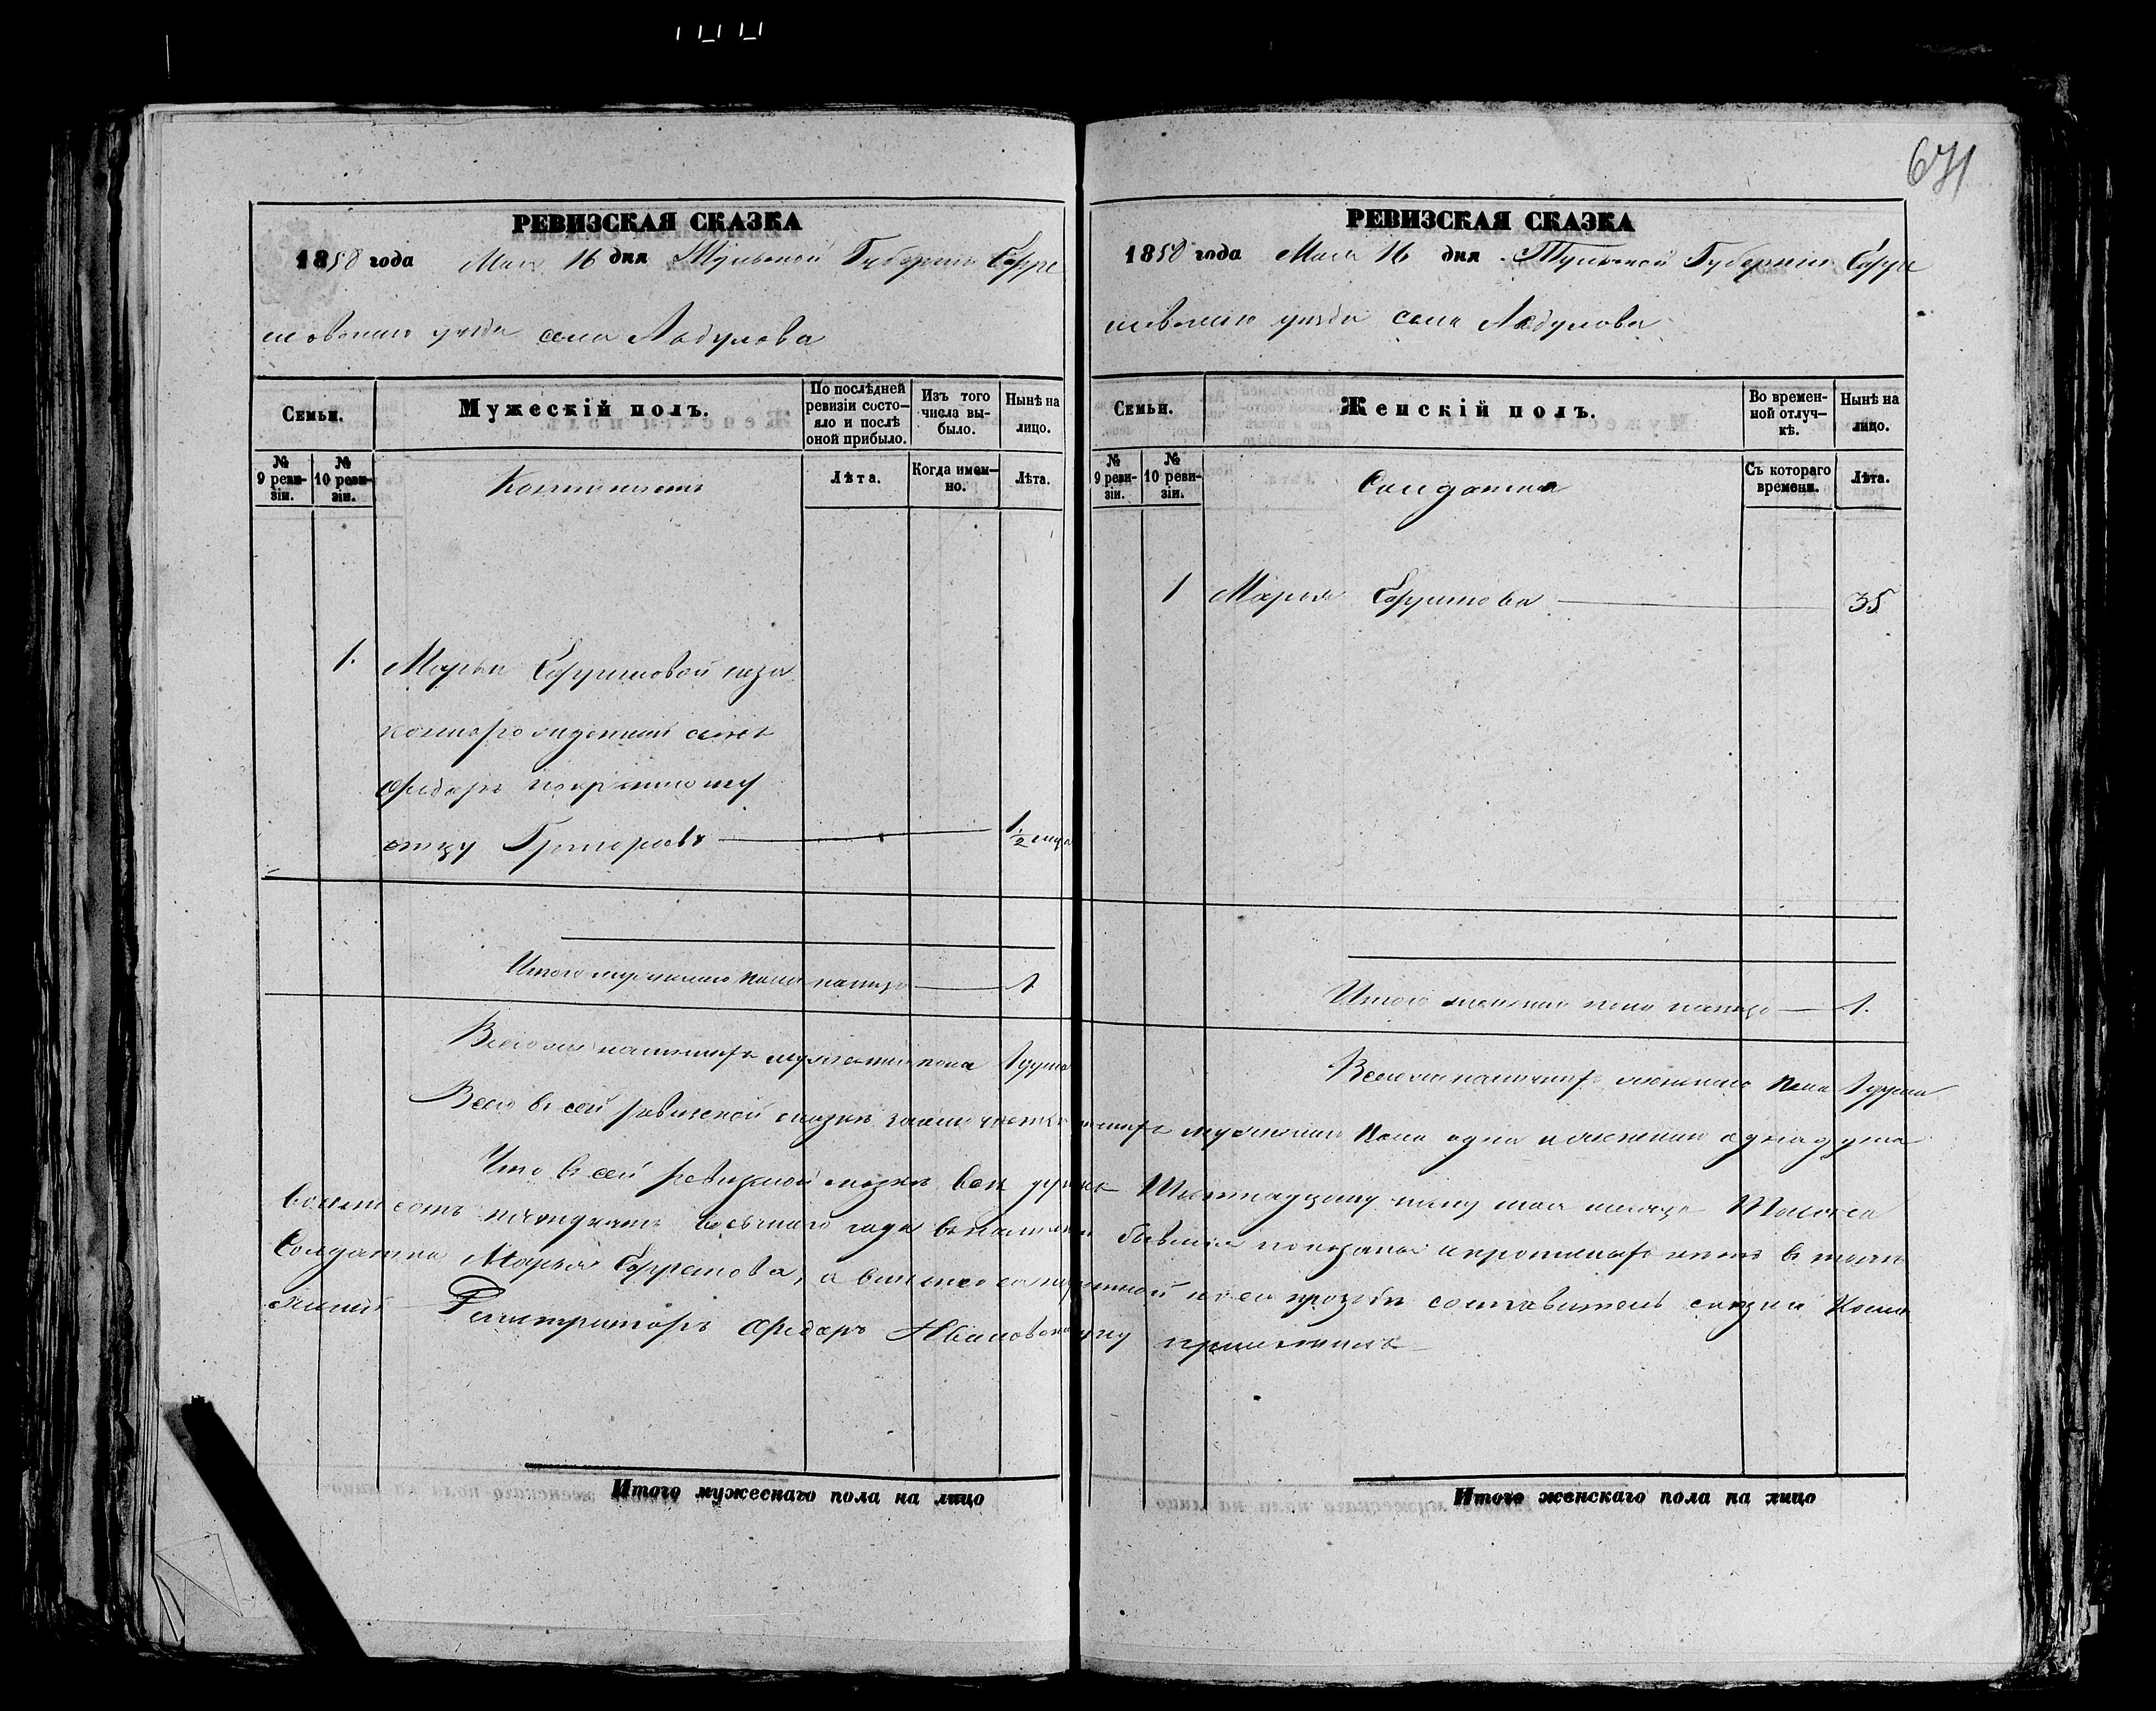 671
РЕВИЗСКАЯ СКАЗКА
1858 года Мая 16 дня Тульской Губернии Ефре
мовскаго уезда села Лобунова
Семьи.
Мужескій полъ.
По послѣдней ревизіи состо-
яло и послѣ оной прибыло.
Изъ того числа вы-
было.
Нынѣ на лицо.
№ 9 реви-
зіи.
№ 10 реви-
зіи.
Кантонистъ
Лѣта.
Когда имен-
но.
Лѣта.
1. Марьи Ефремовой неза
коннорожденный сынъ
Федоръ по крестному
отцу Григорьевъ 1/2 мца
Итого мужескаго пола налицо 1
Всего мужескаго пола 1 душа
РЕВИЗСКАЯ СКАЗКА
1858 года Мая 16 дня Тульской Губерніи Ефре
мовскаго уезда села Лобунова
Семьи.
Женскій полъ.
Во времен-
ной отлуч-
кѣ.
Нынѣ на лицо.
№ 9 реви-
зіи.
№ 10 реви-
зіи.
Солдатка
Съ котораго времени.
Лѣта.
1 Марья Ефремова 35
Итого женскаго пола налицо 1.
Всего женскаго пола 1 душа
Всего в сей ревизской сказке мужескаго пола одна и женскаго одна душа
Что в сей ревизской сказке все души Шестнадцатому числу мая месяца Тысяча
восемь сотъ пятдесятъ восьмаго года в наличии бывшия показаны и
Солдатка Марья Ефремова, а вместо ея неграмотной по ея прозьбе составитель сказки Колле
жский Регистраторъ Федоръ Ивановъ руку приложилъ
Итого мужескаго пола на лицо
Итого женскаго пола на лицо